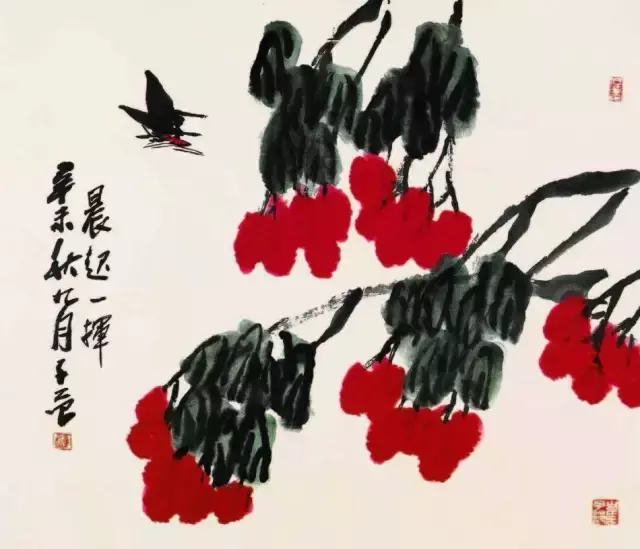 晨起一挥
辛未秋九月子范